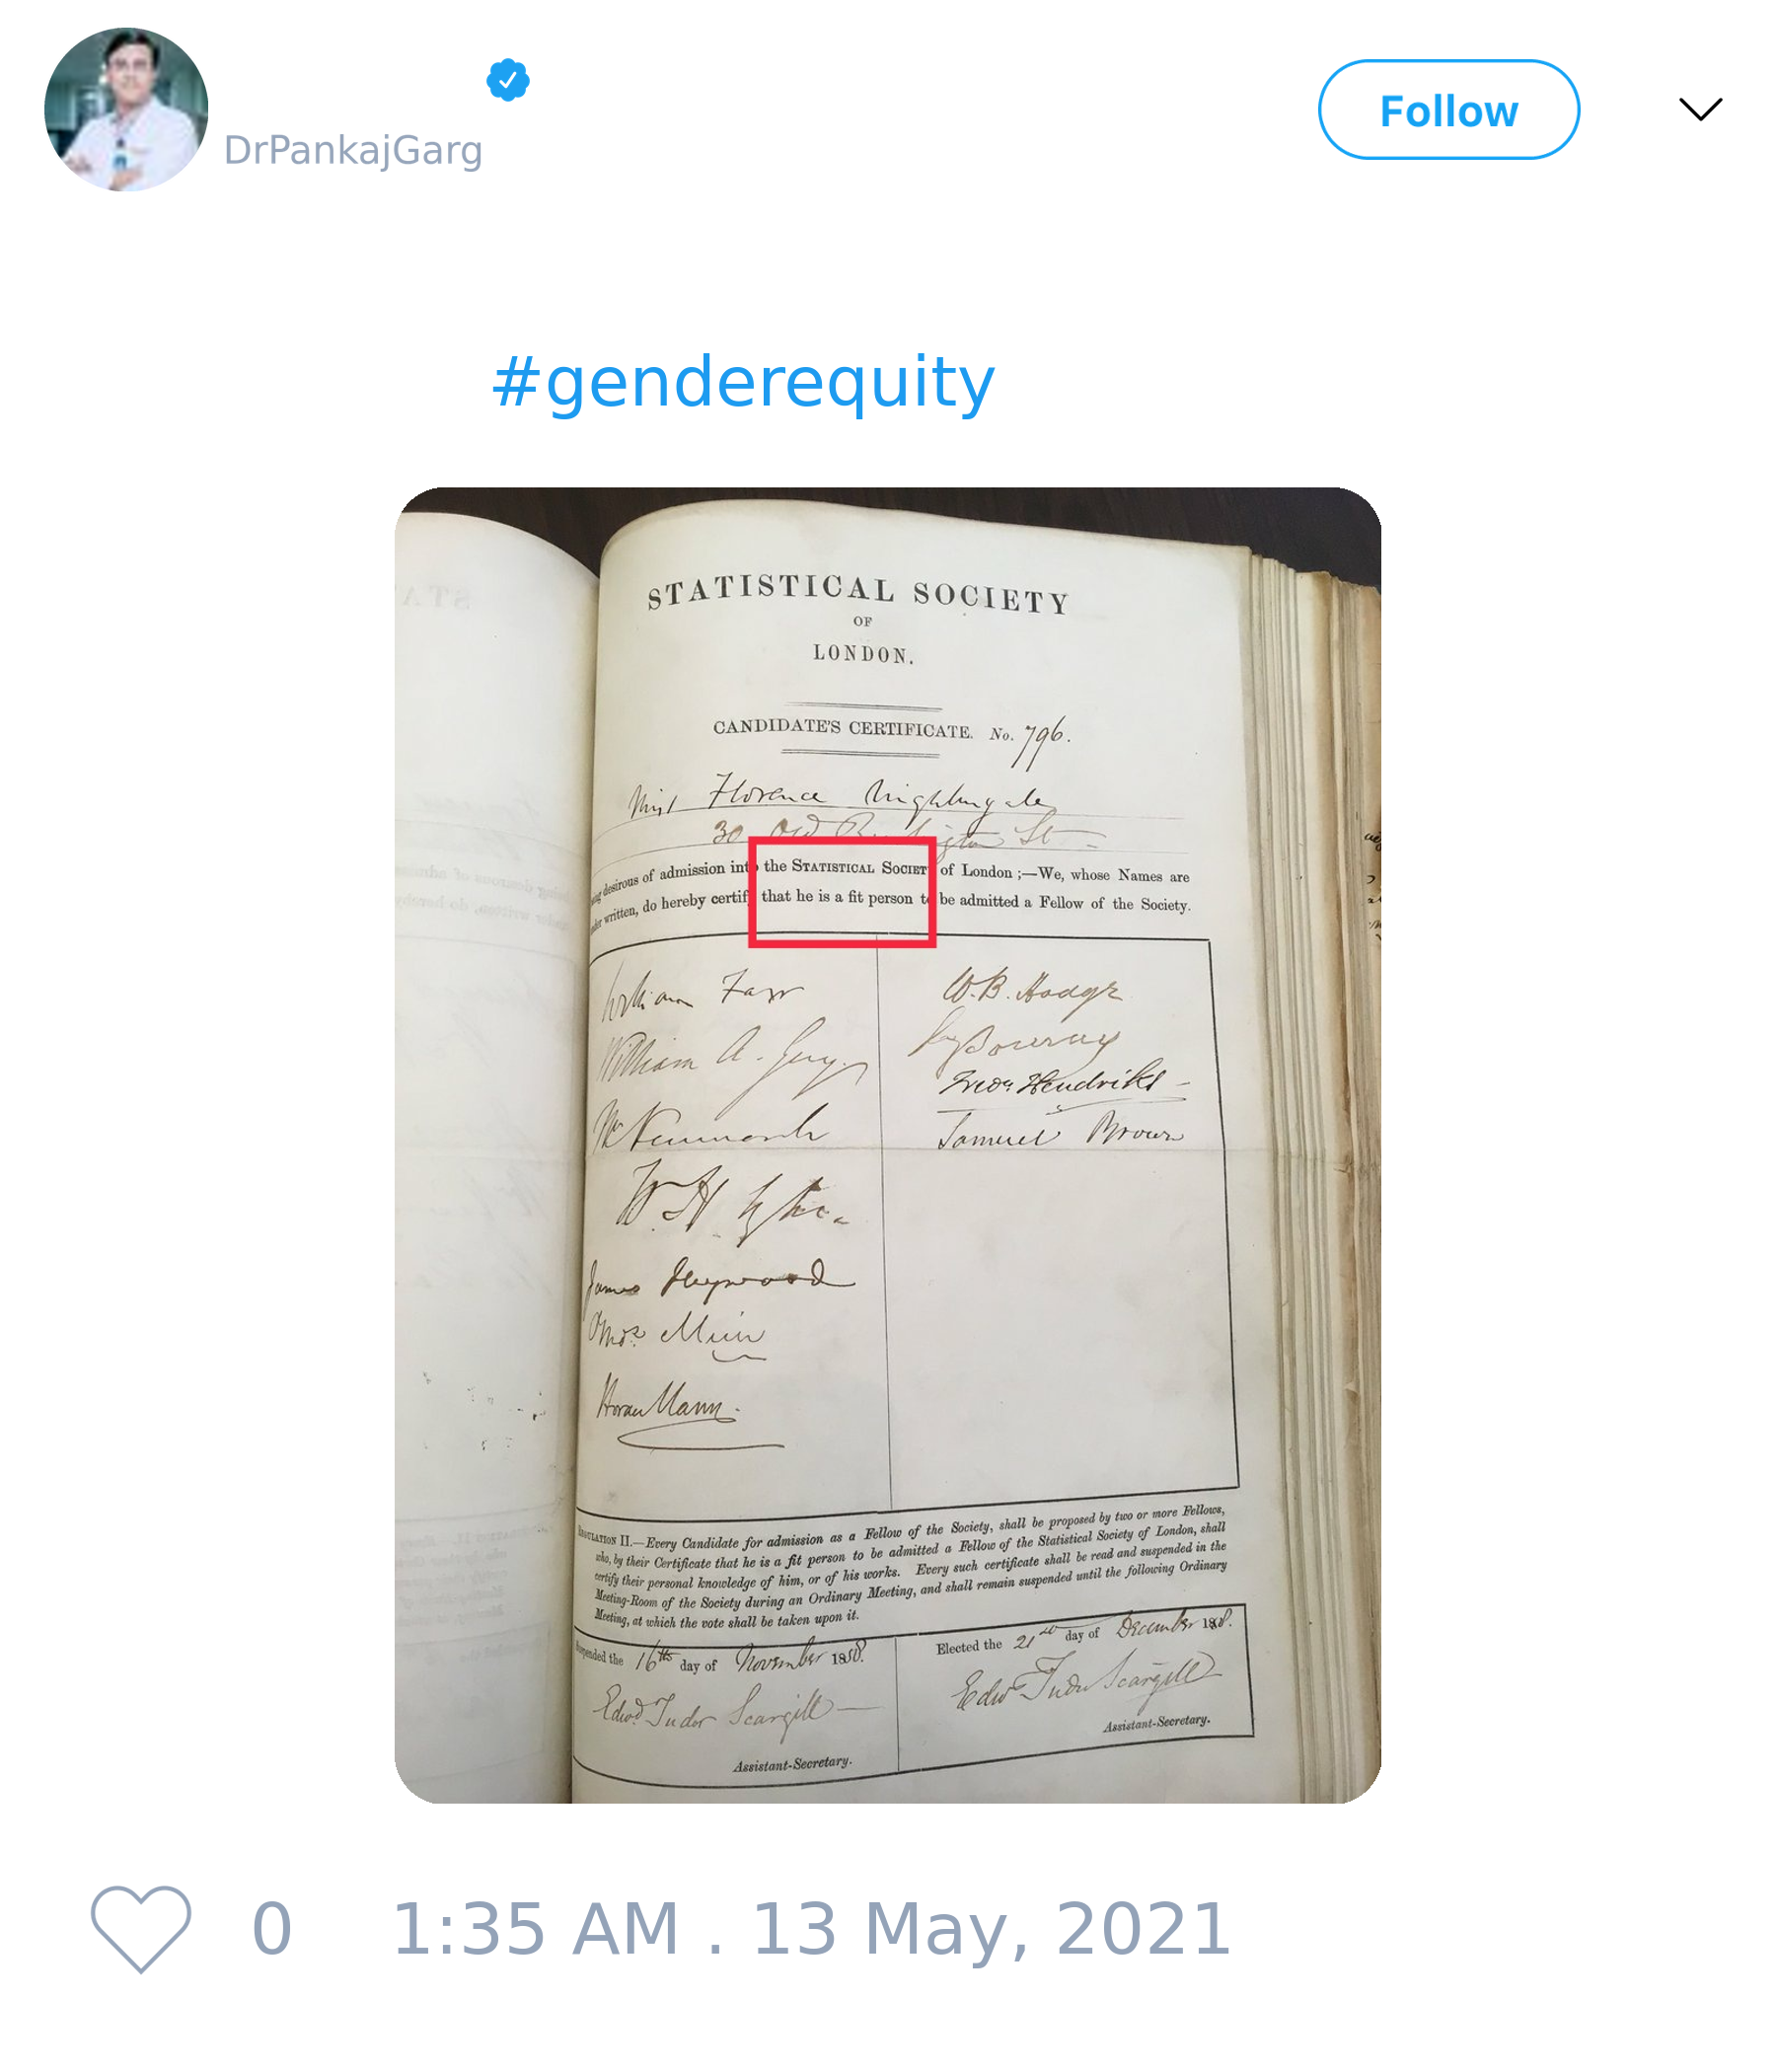 DrPankajGarg
Follow
#genderequity
STATISTICAL SOCIETY
OF
LONDON.
CANDIDATE'S CERTIFICATE. No. 796.
Miss Florence Nightingale
30 Old St
desirous of admission into the STATISTICAL SOCIETY of London ;—We, whose Names are
written, do hereby certify that he is a fit person to be admitted a Fellow of the Society.
William Farr
W. B. Hodge
William A. Guy
Fredk Hendriks
Newmarch
Samuel Brown
W. H.
James Heywood
Thos. Muir
Horace Mann.
REGULATION II.—Every Candidate for admission as a Fellow of the Society, shall be proposed by two or more Fellows,
who, by their Certificate that he is a fit person to be admitted a Fellow of the Statistical Society of London, shall
certify their personal knowledge of him, or of his works. Every such certificate shall be read and suspended in the
Meeting-Room of the Society during an Ordinary Meeting, and shall remain suspended until the following Ordinary
Meeting, at which the vote shall be taken upon it.
Suspended the 16th day of November 1858.
Elected the 21st day of December 1858.
Edwd Tudor Scargill
Edwd Tudor Scargill
Assistant-Secretary.
Assistant-Secretary.
0
1:35 AM . 13 May, 2021